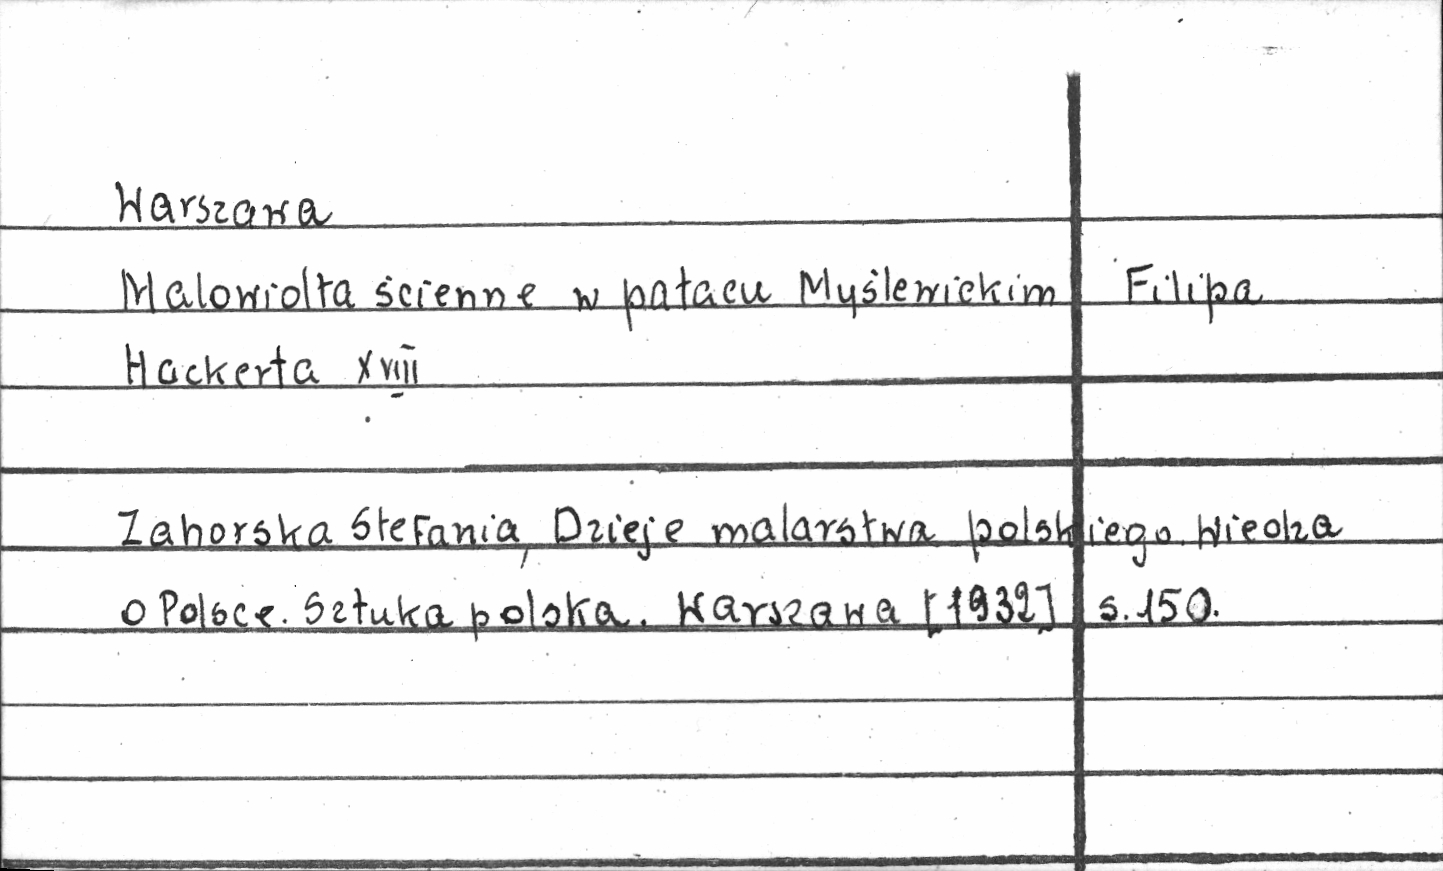 Warszawa
Malowidła ścienne w pałacu Myślewickim Filipa
Hackerta XVIII
Zahorska Stefania, Dzieje malarstwa polskiego. Wiedza
o Polsce. Sztuka polska. Warszawa [1932] s.150.